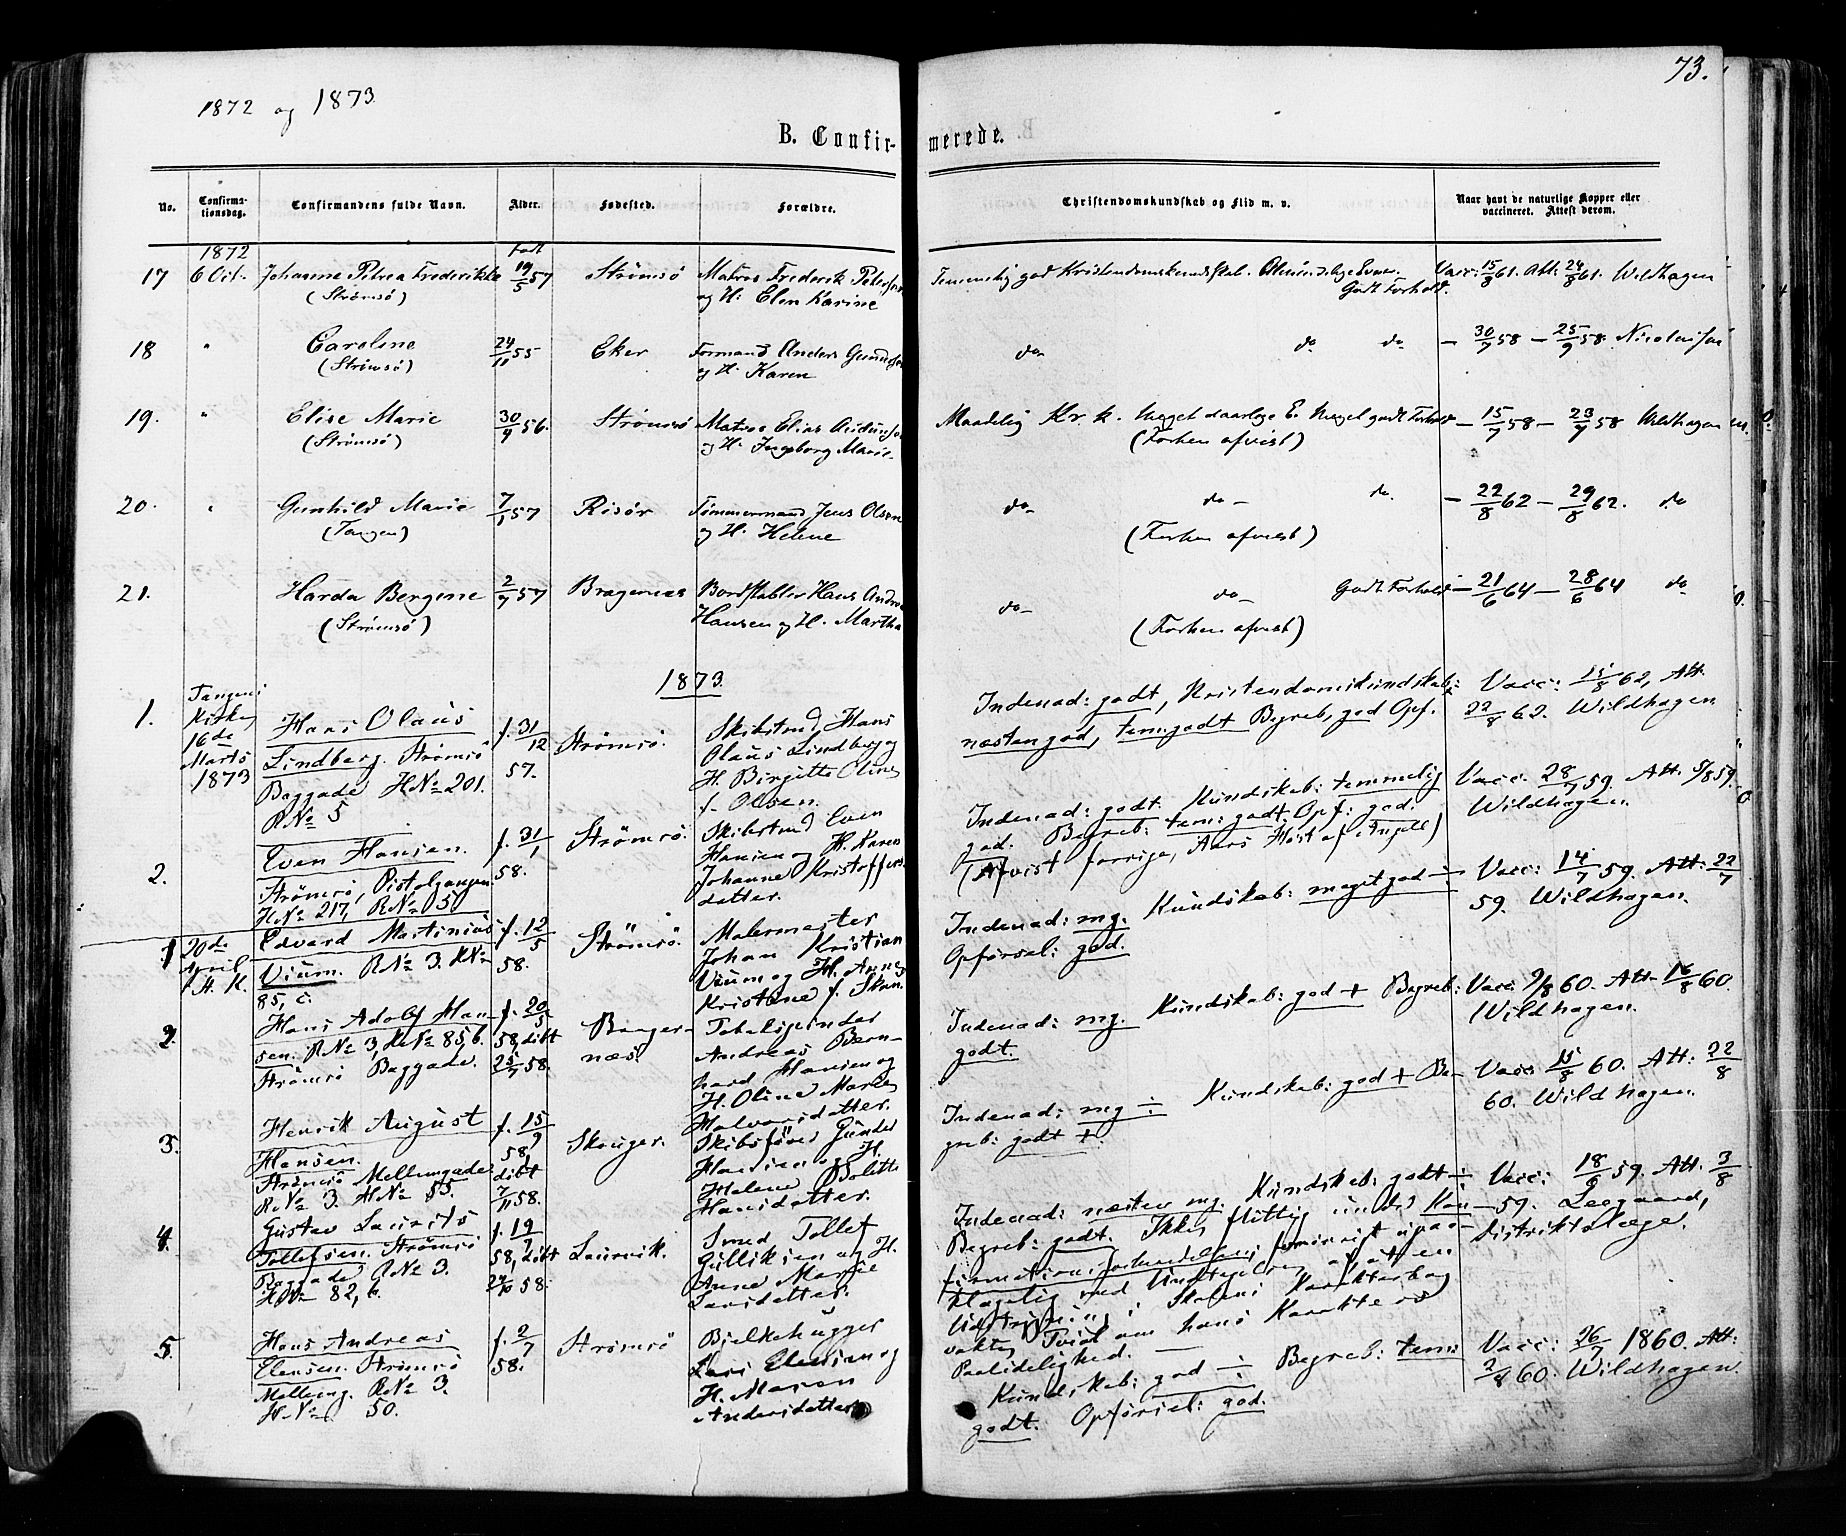 73.
1872 og 1873
B. Confir-merede.
No.
Confirma-tionsdag.
Confirmandens fulde Navn.
Alder.
Fødested.
Forældre.
Christendomskundskab og Flid m. v.
Naar havt de naturlige Kopper eller vaccineret. Attest derom.
1872
født
17 6 Oct. Johanne Petrea Frederikke 19/5 57 Strømsø Matros Frederik Petersen
(Strømsø) og H: Elen Karine
Temmelig god Kristendomskundskab. Evner. Godt Forhold. Vacc: 15/8 61. Att: 24/8 61. Wildhagen
18 " Caroline 24/11 55 Eker Formand Anders
(Strømsø) og H. Karen
do do do — 30/7 58 — 25/9 58. Nicolaisen
19. " Elise Marie 30/9 56. Strømsø Matros Elias
(Strømsø) og H. Ingeborg Marie
Maadelig Kr. k. Meget daarlige E. Meget godt Forhold — 15/7 58 — 23/7 58 Wildhagen
(Forhen afvist)
20. " Gunhild Marie 7/1 57 Risør Tømmermand Jens Olsen
(Tangen) og H. Helene
do do do — 22/8 62 — 29/8 62. do
(Forhen afvist)
21. Harda Bergine 2/7 57 Bragernæs Bordstabler Hans Andreas
(Strømsø) Hansen og H. Martha
do do Godt Forhold — 21/6 64 — 28/6 64 do
(Forhen afvist)
1873.
1. Tangens
Kirke,
16de
Marts
1873
Hans Olaus
Lindberg. Strømsö
Baggade HNo 201.
RNo 5
f. 31/12
57.
Strømsö.
Skibstmd Hans
Olaus Lindberg og
H. Birgitte Oline
f. Olsen.
Indenad: godt, Kristendomskundskab:
næsten god, tem. godt Begreb, god Opf.
Vacc: 15/8 62, Att.
22/8 62. Wildhagen
2. Even Hansen.
Strömsö, Pistolgangen
HNo 217, RNo 5
f. 31/1
58.
Strømsö.
Skibstmd Even
Hansen og H. Karen
Johanne Kristoffers
datter.
Indenad: godt. Kundskab: temmelig
god. Begreb: tem: godt: Opf: god.
(Afvist forrige Aars Høst af Angell)
Vacc. 28/7 59. Att. 5/8 59.
Wildhagen.
1 20de
April
St. K.
Edvard Martinius
Vium. RNo 3. HNo
85, c.
f. 12/5
58.
Strömsö.
Malermester
Johan Kristian
Vium og H. Anne
Kristine f.
Indenad: mg. Kundskab: meget god ÷
Opførsel: god.
Vacc: 14/7 59. Att: 22/7
59. Wildhagen.
2. Hans Adolf Han-
sen. RNo 3, HNo 85, b.
Strømsö Baggade.
f. 20/5
58, döbt
25/7 58.
Brager-
næs.
Tobakspinder
Andreas Bern-
hard Hansen og
H. Oline Marie
Halvorsdatter.
Indenad: mg. Kundskab: god + Begreb:
godt.
Vacc: 9/8 60. Att 16/8 60.
Wildhagen.
3. Henrik August
Hansen.
Strömsö Mellemgade
RNo 3. HNo 55.
f. 15/9
58,
döbt
7/11 58.
Skouger.
Skibsförer Gunder
Hansen og H.
Helene Bolette
Hansdatter.
Indenad: mg ÷ Kundskab: god + Be-
greb: godt +.
Vacc: 15/8 60. Att: 22/8
60. Wildhagen.
4. Gustav Laurits
Tollefsen. Strömsö
Baggade RNo 3.
HNo 82, b.
f. 19/7
58, döbt
24/10 58.
Laurvik.
Smed Tollef
Gulliksen og H.
Anne Marie
Larsdatter.
Indenad: næsten mg. Kundskab: godt ÷
Begreb: godt. Ikke flittig under Kon-
firmationsforberedelsen, forøvrigt upaa-
klagelig med Undtagelse af at en
i Skolens Karakterbog
vakte Tvivl om hans Karakters
Paalidelighed.
Vacc: 18/6 59. Att. 3/8
59. Leegaard,
Distriktslæge.
5. Hans Andreas
Elensen. Strømsö
Mellemg. RNo 3.
HNo 50.
f. 2/7
58.
Strømsö
Bjelkehugger
Lars Elensen og
H. Maren
Andersdatter.
Kundskab: god ÷ Begreb: tem:
godt. Opførsel: god.
Vacc: 26/7 1860. Att.
2/8 60. Wildhagen.